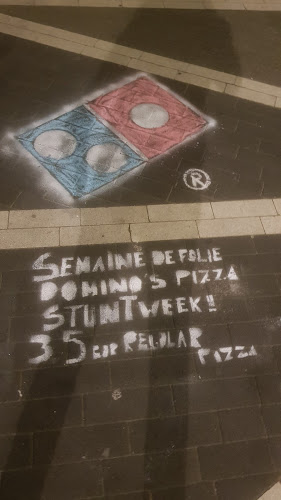 ®
SEMAINE DE FOLIE
DOMINO'S PIZZA
STUNTWEEK!!
3.5 EUR REGULAR
PIZZA